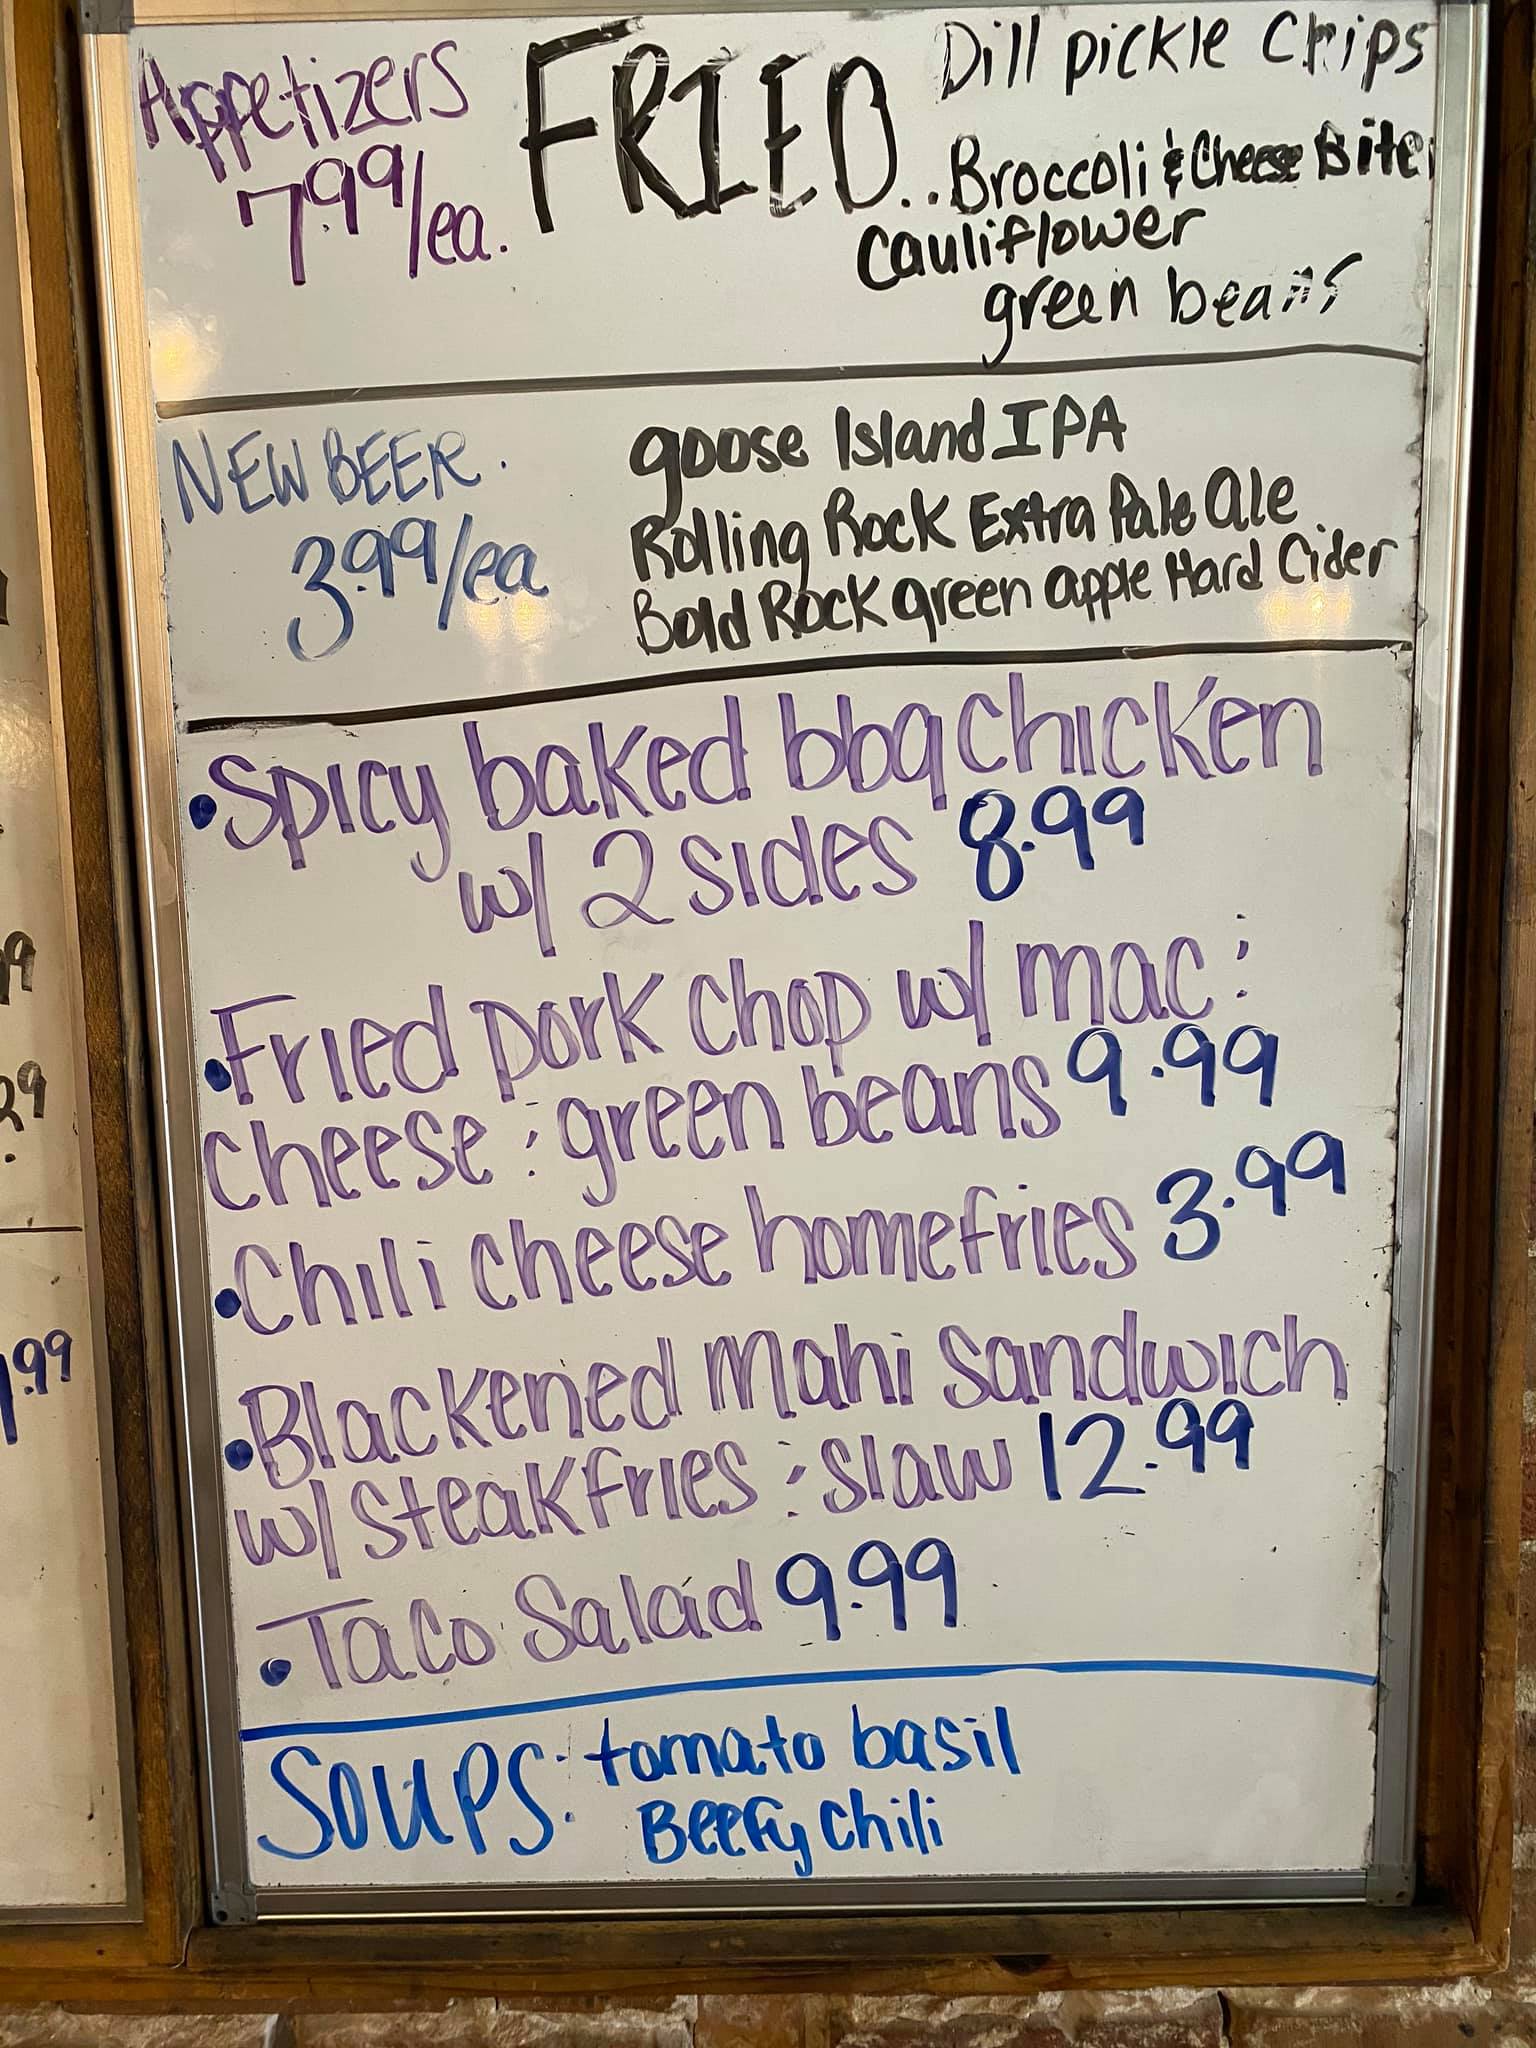 Appetizers
7.99/ea.
FRIED..
Dill pickle Chips
Broccoli & Cheese Bite
Cauliflower
green beans
NEW BEER.
3.99/ea
goose Island IPA
Rolling Rock Extra Pale Ale
Bold Rock green apple Hard Cider
•Spicy baked bbq chicken
w/ 2 sides 8.99
•Fried pork chop w/ mac :
cheese : green beans 9.99
•Chili cheese homefries 3.99
•Blackened Mahi Sandwich
w/ steak fries : slaw 12.99
•Taco Salad 9.99
SOUPS: tomato basil
Beefy Chili
.99